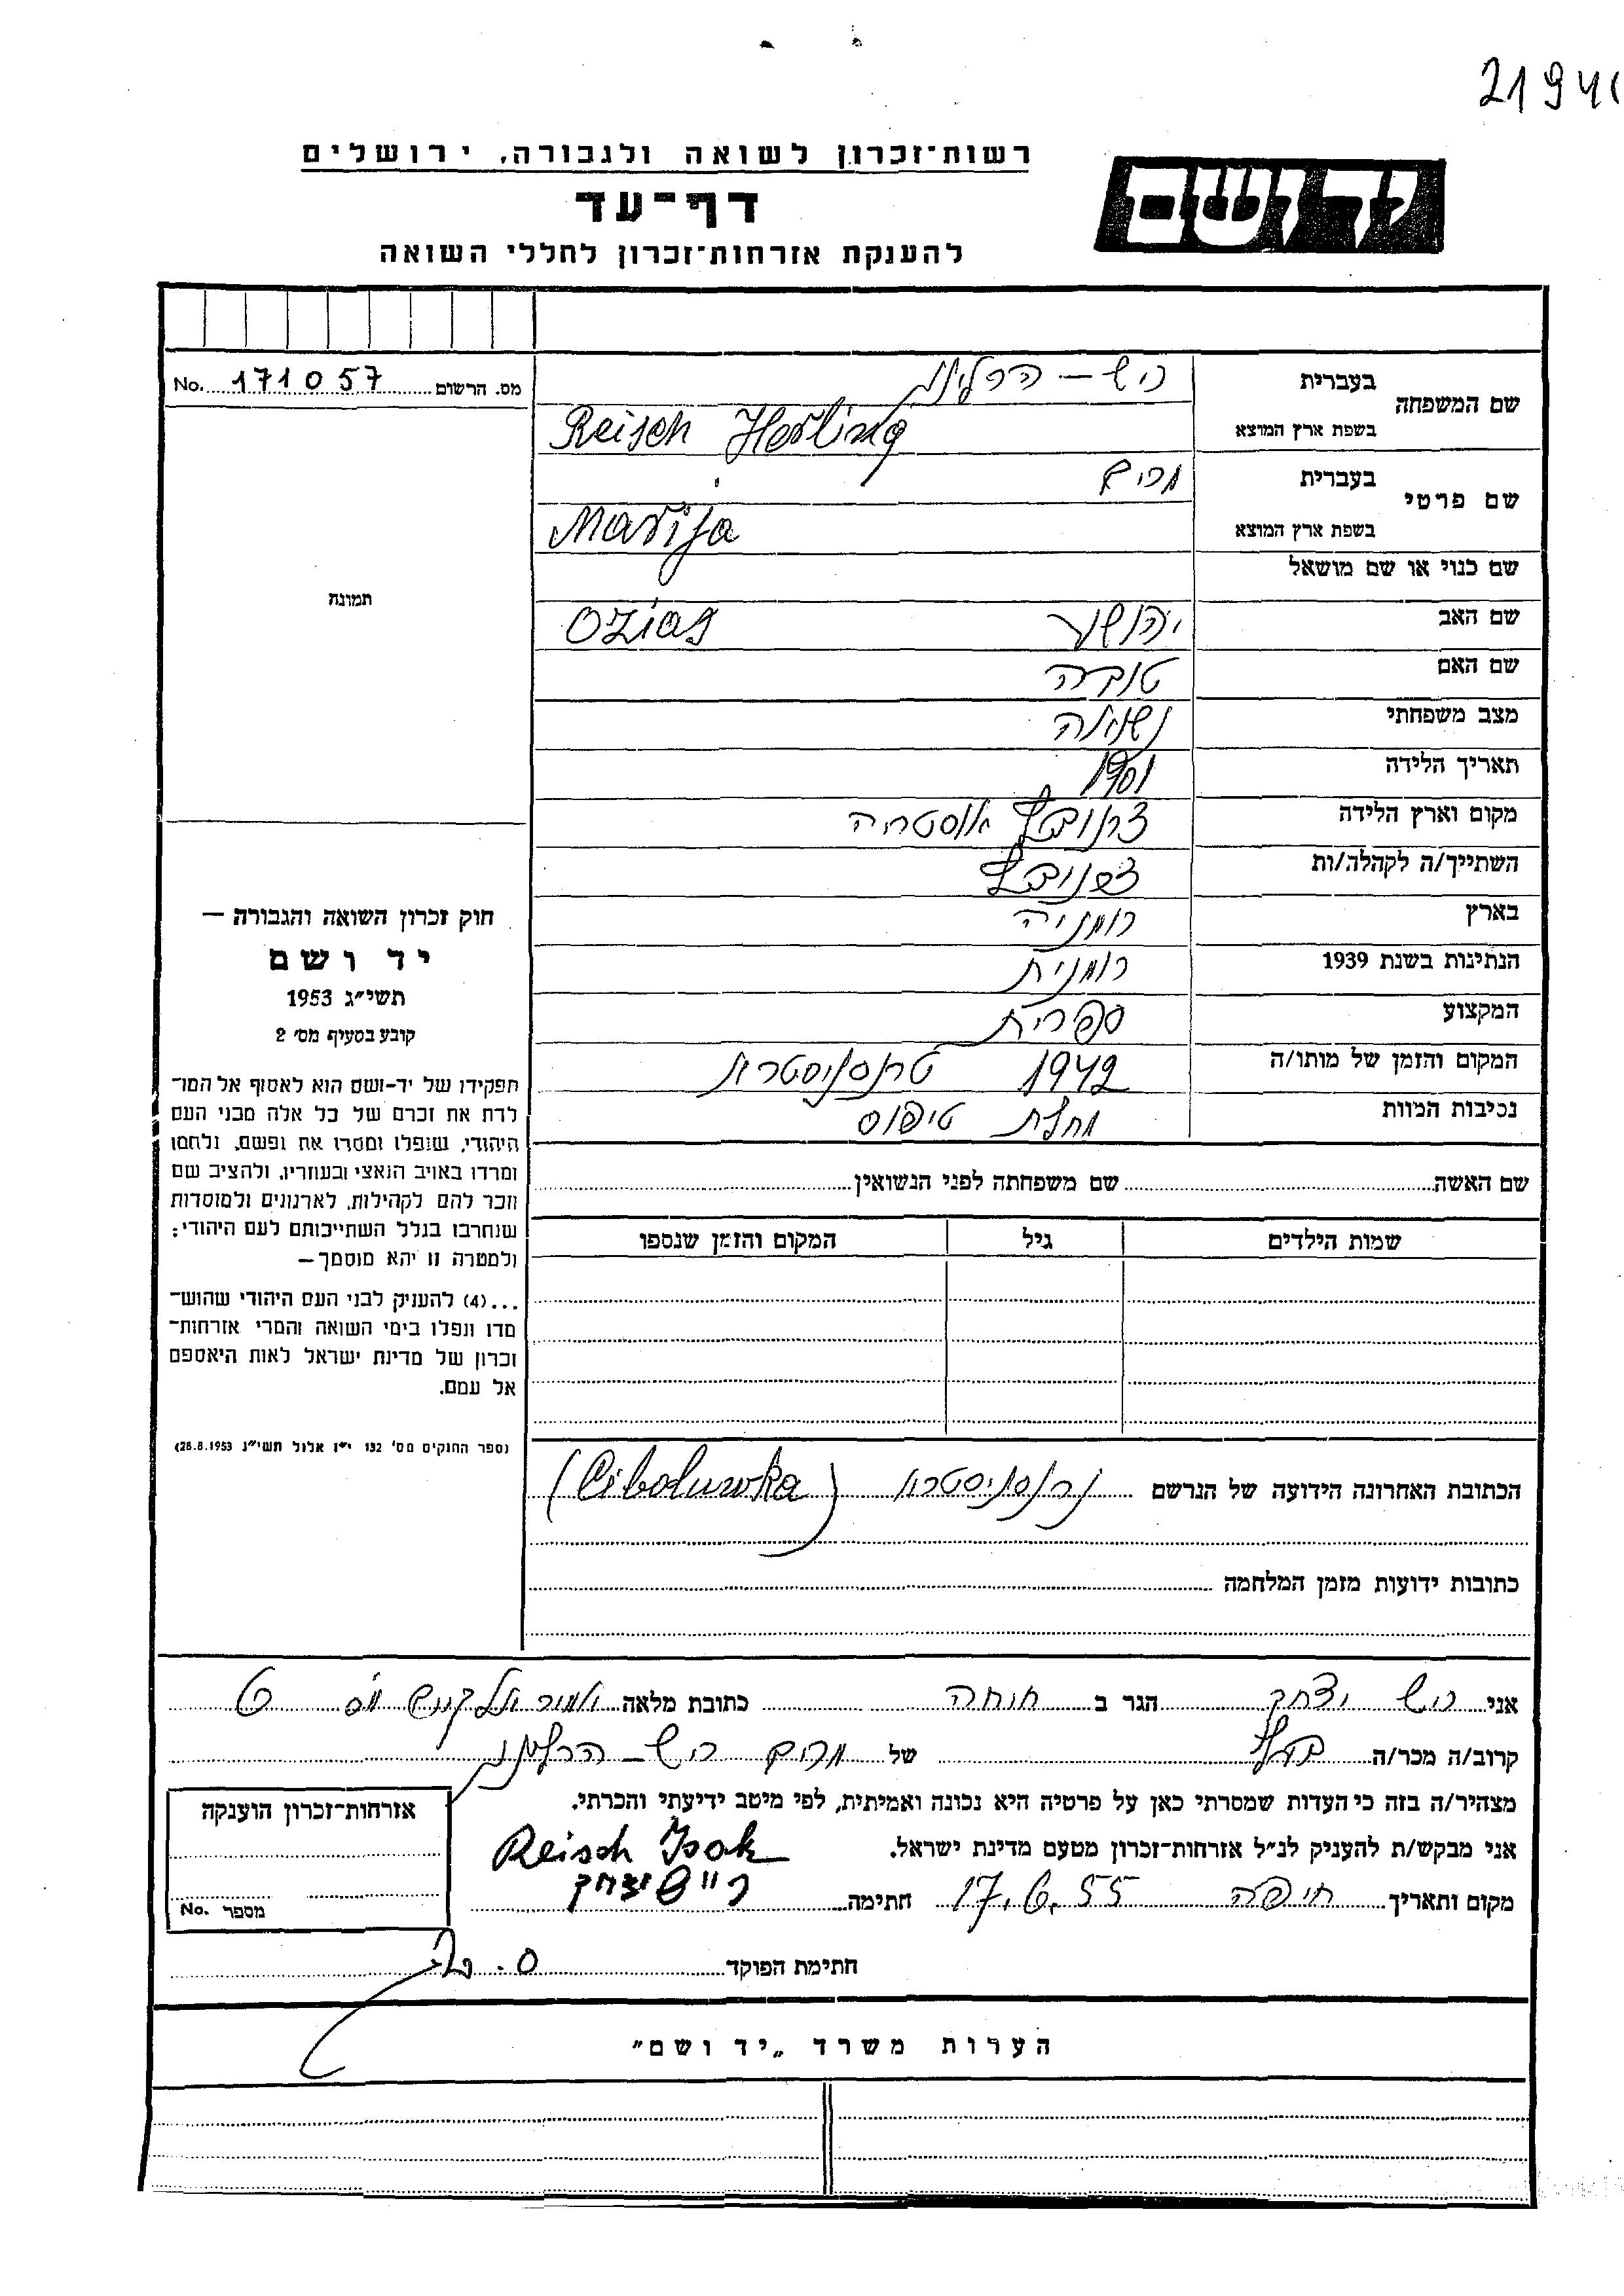 2194
רשות־זכרון לשואה ולגבורה, ירושלים
יד ושם
דף־עד
להענקת אזרחות־זכרון לחללי השואה
מס. הרשום 171057 No.
שם המשפחה בעברית ריש – הרלינג
בשפת ארץ המוצא Reisch Herling
שם פרטי בעברית מרים
בשפת ארץ המוצא Marija
שם כנוי או שם מושאל
תמונה
שם האב יהושע Ozias
שם האם טובה
מצב משפחתי נשואה
תאריך הלידה 1901
מקום וארץ הלידה אוסטריה
השתייך/ה לקהלה/ות
בארץ רומניה
הנתינות בשנת 1939 רומנית
המקצוע ספרית
המקום והזמן של מותו/ה 1942 טרנסניסטריה
נסיבות המוות מחלת טיפוס
חוק זכרון השואה והגבורה —
יד ושם
תשי״ג 1953
קובע בסעיף מס׳ 2
תפקידו של יד-ושם הוא לאסוף אל המו־
לדת את זכרם של כל אלה מבני העם
היהודי, שנפלו ומסרו את נפשם, נלחמו
ומרדו באויב הנאצי ובעוזריו, ולהציב שם
וזכר להם לקהילות, לארגונים ולמוסדות
שנחרבו בגלל השתייכותם לעם היהודי;
ולמטרה זו יהא מוסמך —
...(4) להעניק לבני העם היהודי שהוש־
מדו ונפלו בימי השואה והמרי אזרחות־
זכרון של מדינת ישראל לאות היאספם
אל עמם.
(ספר החוקים מס׳ 132 י״ז אלול תשי״ג 28.8.1953)
שם האשה שם משפחתה לפני הנשואין
שמות הילדים גיל המקום והזמן שנספו
הכתובת האחרונה הידועה של הנרשם טרנסניסטריה
כתובות ידועות מזמן המלחמה
אני ריש יצחק הגר ב כתובת מלאה
קרוב/ה מכר/ה בעל של מרים ריש – הרלינג
מצהיר/ה בזה כי העדות שמסרתי כאן על פרטיה היא נכונה ואמיתית, לפי מיטב ידיעתי והכרתי.
אני מבקש/ת להעניק לנ״ל אזרחות־זכרון מטעם מדינת ישראל.
Reisch Isak
מקום ותאריך חיפה 17.6.55 חתימה רייש יצחק
אזרחות־זכרון הוענקה
מספר No.
חתימת הפוקד
הערות משרד „יד ושם״